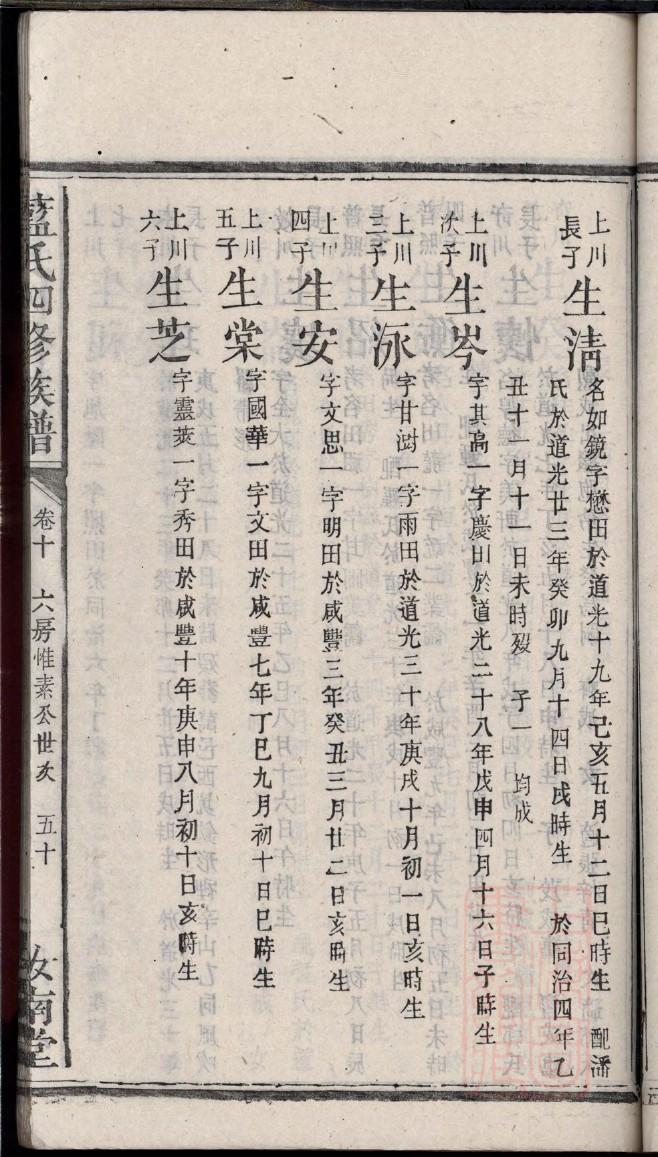 上川
長子
生清
名如鏡字懋田於道光十九年己亥五月十二日巳時生 配潘
氏於道光廿三年癸卯九月十四日戌時生 於同治四年乙
丑十一月十一日未時歿 子一 均成
上川
次子
生岑
字其高一字慶田於道光二十八年戊申四月十六日子時生
上川
三子
生泳
字甘澍一字雨田於道光三十年庚戌十月初一日亥時生
上川
四子
生安
字文思一字明田於咸豐三年癸丑三月廿二日亥時生
上川
五子
生棠
字國華一字文田於咸豐七年丁巳九月初十日巳時生
上川
六子
生芝
字靈莢一字秀田於咸豐十年庚申八月初十日亥時生
藍氏四修族譜
卷十 六房惟素公世次 五十
汝南堂